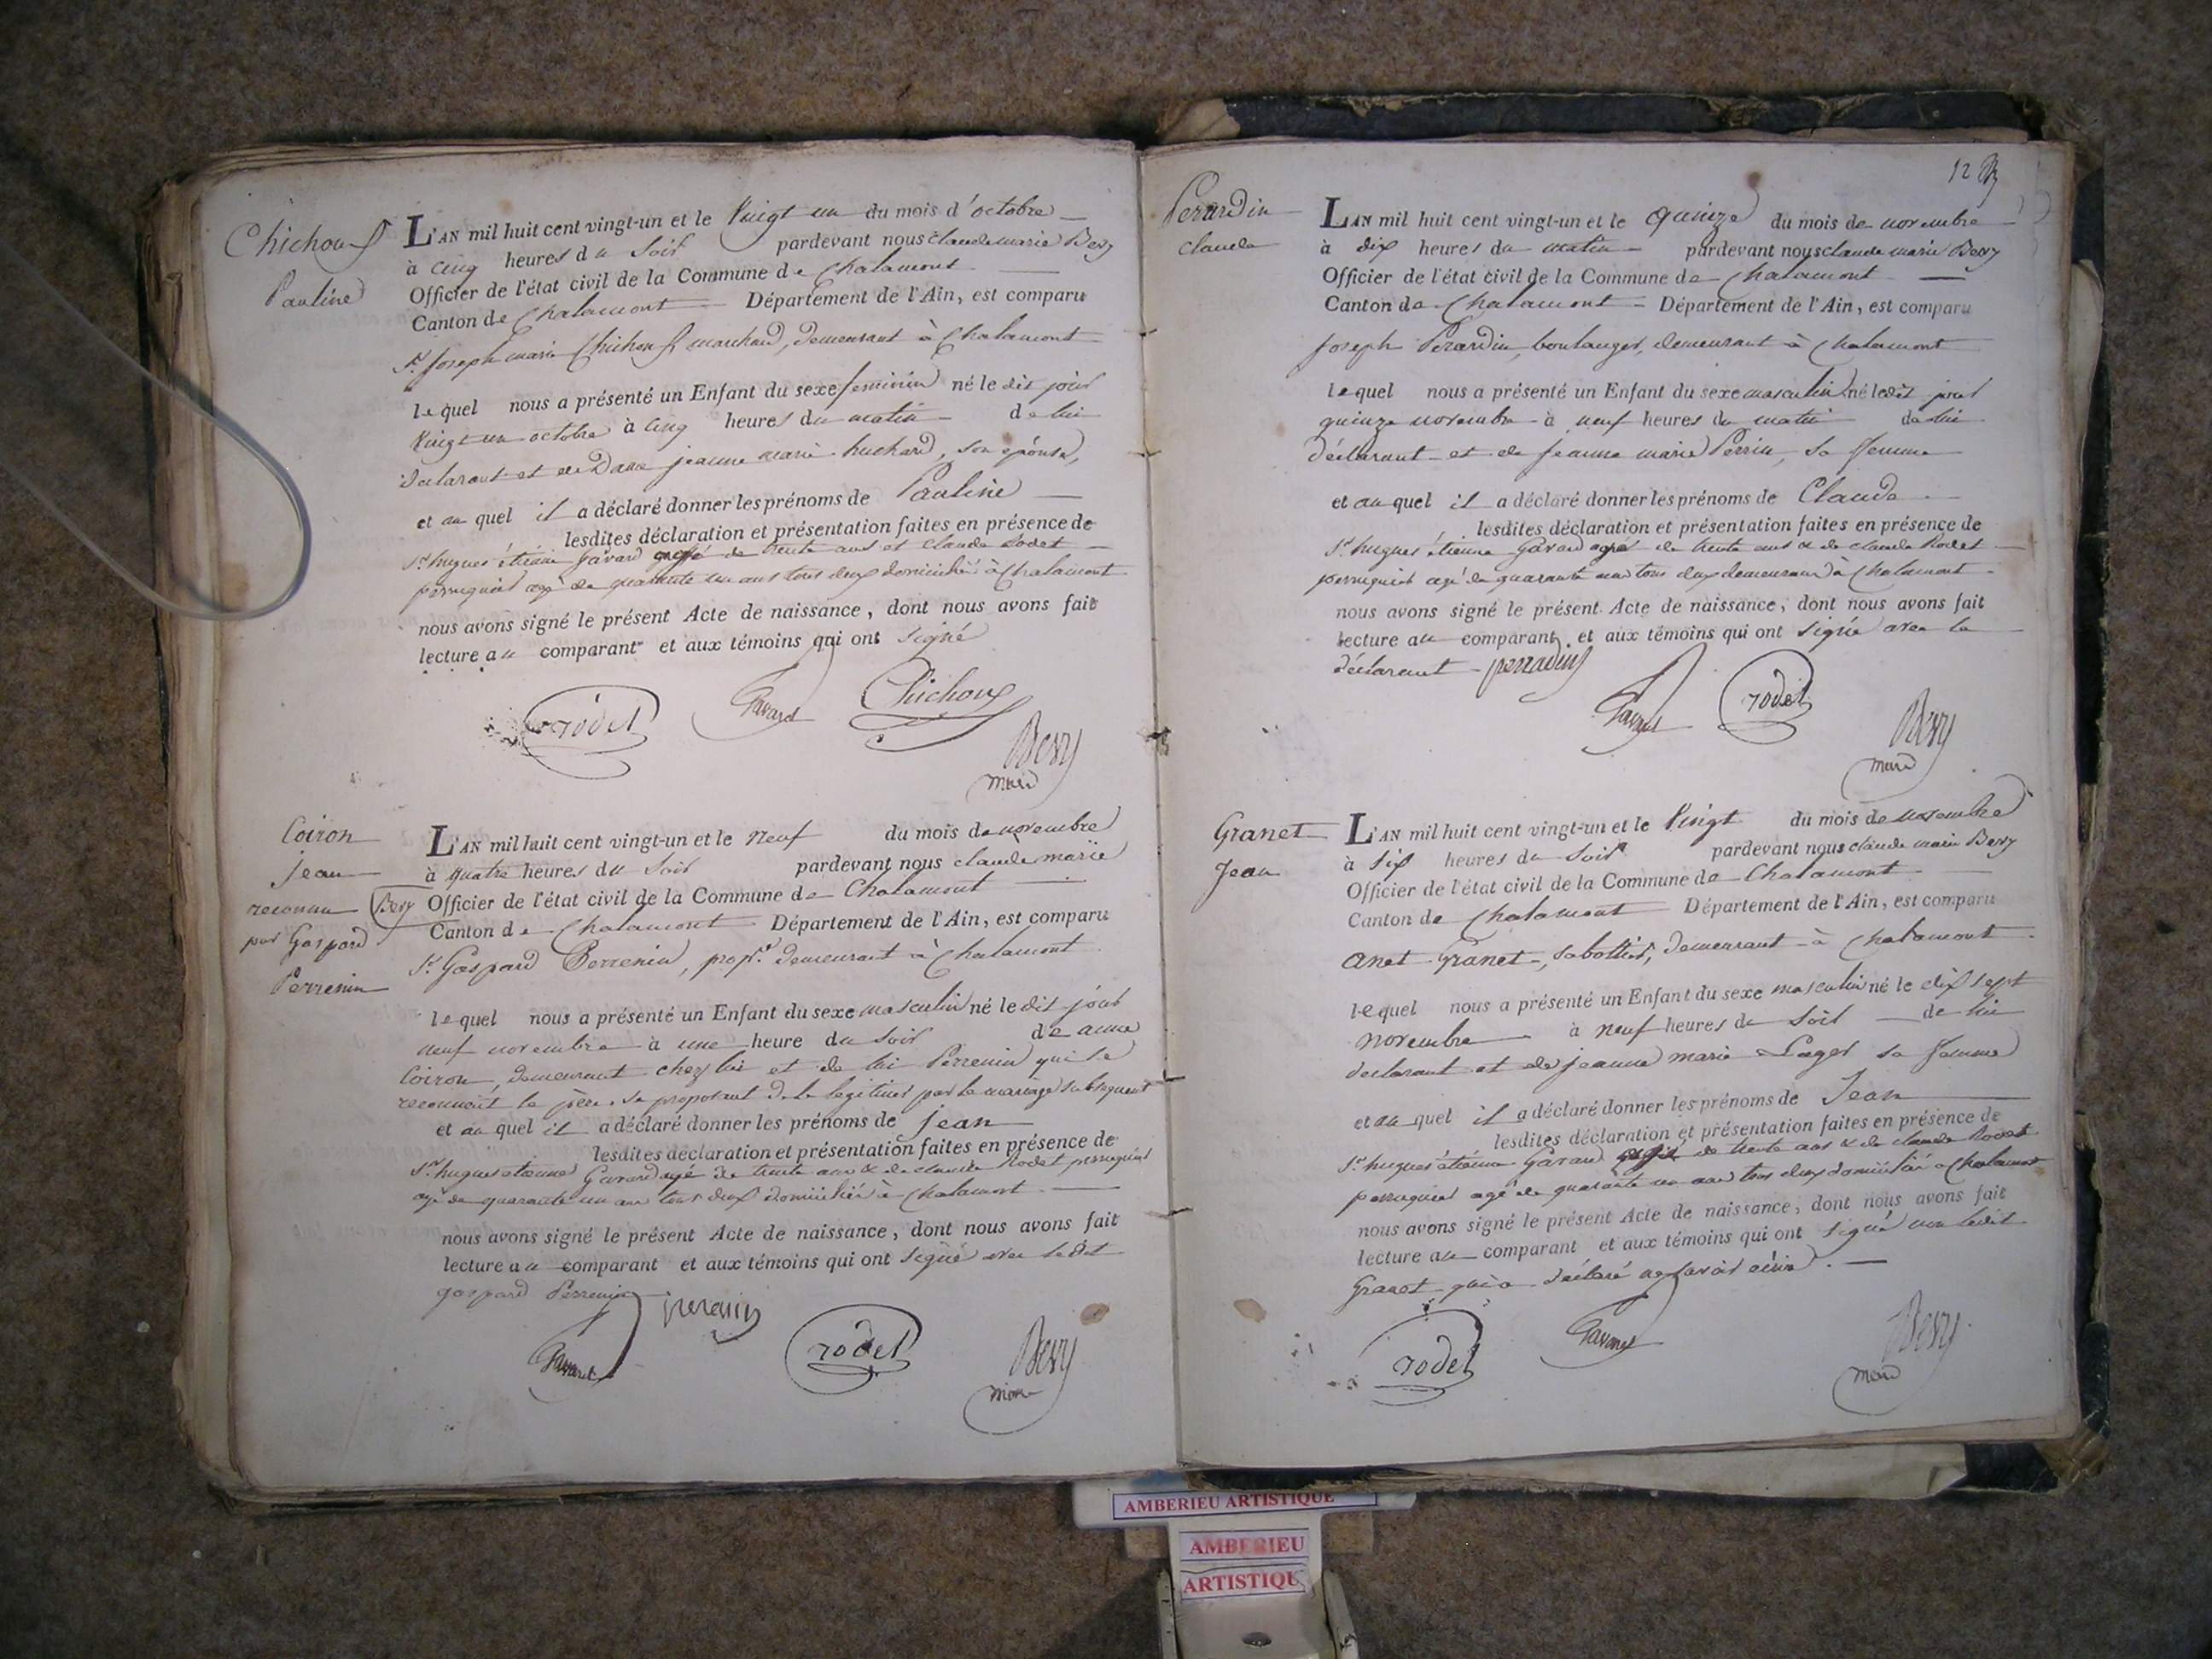 Chichoux
Pauline
L'AN mil huit cent vingt-un et le Vingt un du mois d'octobre
à cinq heures du soir pardevant nous claude marie Bevy
Officier de l'état civil de la Commune de Chalamont
Canton de Chalamont Département de l'Ain, est comparu
Sr. joseph marie Chichoux, marchand, demeurant à Chalamont
lequel nous a présenté un Enfant du sexe feminin né le dit jour
Vingt un octobre à cinq heures du matin de lui
déclarant et de Dame jeanne marie huchard, son épouse,
et au quel il a déclaré donner les prénoms de Pauline
lesdites déclaration et présentation faites en présence de
Sr. hugues étienne Gavard agé de trente ans et claude Rodet
perruquier agé de quarante un ans tous deux domiciliés à Chalamont
nous avons signé le présent Acte de naissance, dont nous avons fait
lecture au comparant et aux témoins qui ont signé
rodet Gavard Chichoux
Bevy
maire
Coiron
jean
reconnu Bevy
par Gaspard
Perrenin
L'AN mil huit cent vingt-un et le neuf du mois de novembre
à quatre heures du soir pardevant nous claude marie
Officier de l'état civil de la Commune de Chalamont
Canton de Chalamont Département de l'Ain, est comparu
Sr. Gaspard Perrenin, propre. demeurant à Chalamont
lequel nous a présenté un Enfant du sexe masculin né le dit jour
neuf novembre à une heure du soir de anne
Coiron, demeurant chez lui et de lui Perrenin qui se
reconnoit le père, se proposant de le legitimer par le mariage subsequent
et au quel il a déclaré donner les prénoms de jean
lesdites déclaration et présentation faites en présence de
Sr. hugues etienne Gavard agé de trente ans & de claude Rodet perruquier
agé de quarante un ans tous deux domiciliés à Chalamont
nous avons signé le présent Acte de naissance, dont nous avons fait
lecture au comparant et aux témoins qui ont signé avec ledit
gaspard Perrenin perenin
Gavard rodet Bevy
maire
12
Perardin
claude
L'AN mil huit cent vingt-un et le quinze du mois de novembre
à dix heures du matin pardevant nous claude marie Bevy
Officier de l'état civil de la Commune de Chalamont
Canton de Chalamont Département de l'Ain, est comparu
joseph Perardin, boulanger, demeurant à Chalamont
lequel nous a présenté un Enfant du sexe masculin né ledit jour
quinze novembre à neuf heures du matin de lui
déclarant et de jeanne marie Perrin, sa femme
et au quel il a déclaré donner les prénoms de Claude
lesdites déclaration et présentation faites en présence de
Sr. hugues étienne Gavard agé de trente ans & de claude Rodet
perruquier agé de quarante un ans tous deux demeurant à Chalamont
nous avons signé le présent Acte de naissance, dont nous avons fait
lecture au comparant et aux témoins qui ont signé avec le
déclarant perradin
Gavard rodet
Bevy
maire
Granet
Jean
L'AN mil huit cent vingt-un et le Vingt du mois de novembre
à six heures du soir pardevant nous claude marie Bevy
Officier de l'état civil de la Commune de Chalamont
Canton de Chalamont Département de l'Ain, est comparu
anet Granet, sabottier, demeurant à Chalamont
lequel nous a présenté un Enfant du sexe masculin né le dix sept
novembre à neuf heures du soir de lui
déclarant et de jeanne marie Laget sa femme
et au quel il a déclaré donner les prénoms de Jean
lesdites déclaration et présentation faites en présence de
Sr. hugues étienne Gavard agé de trente ans & de claude Rodet
perruquier agé de quarante un ans tous deux domiciliés à Chalamont
nous avons signé le présent Acte de naissance, dont nous avons fait
lecture au comparant et aux témoins qui ont signé non ledit
Granet qui a déclaré ne savoir écrire.
rodet Gavard Bevy
maire
AMBERIEU ARTISTIQUE
AMBERIEU
ARTISTIQU